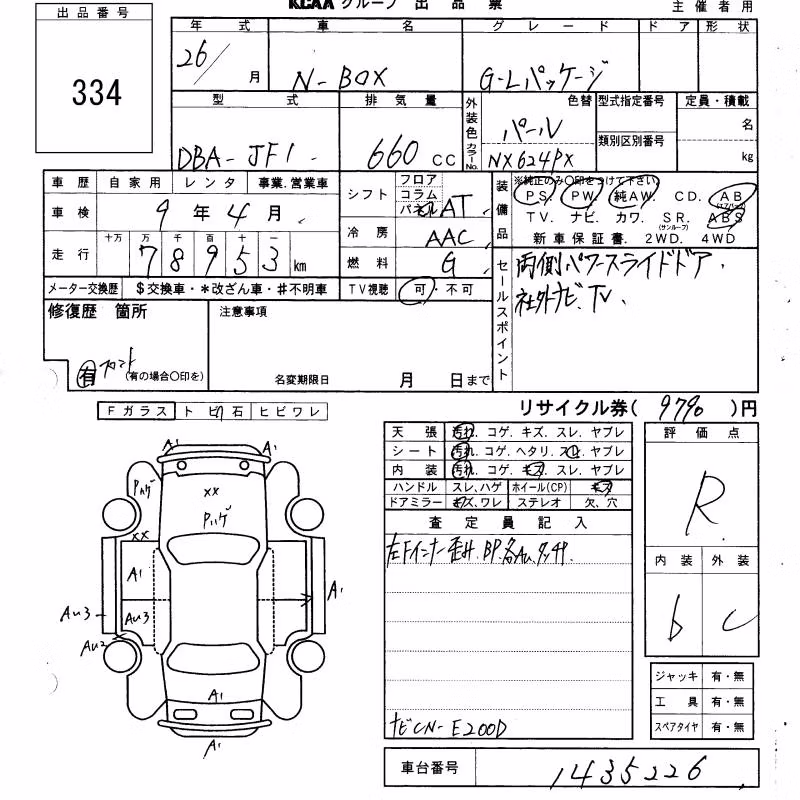 KCAA グループ 出品票 主催者用
出品番号
334
年式 車名 グレード ドア 形状
26/ 月 N-BOX G・Lパッケージ
型式 排気量 外装色 色替 型式指定番号 定員・積載
DBA-JF1 660 CC パール 類別区別番号 名
カラーNo. NX624PX kg
車歴 自家用 レンタ 事業.営業車
車検 9年4月
走行 十万 万 千 百 十 一
78953 km
メーター交換歴 $交換車・*改ざん車・#不明車
シフト フロア コラム パネル AT
冷房 AAC
燃料 G
TV視聴 可・不可
装備品 ※純正のみ〇印をつけて下さい
PS. PW. 純AW. CD. AB(エアバック)
TV. ナビ. カワ. SR.(サンルーフ) ABS
新車保証書. 2WD. 4WD
セールスポイント
両側パワースライドドア.
社外ナビ.TV.
修復歴 箇所
有 フロント (有の場合〇印を)
注意事項
名変期限日 月 日まで
Fガラス トビ石 ヒビワレ
リサイクル券( 9790 )円
天張 汚れ. コゲ. キズ. スレ. ヤブレ
シート 汚れ. コゲ. ヘタリ. スレ. ヤブレ
内装 汚れ. コゲ. キズ. スレ. ヤブレ
ハンドル スレ.ハゲ ホイール(CP) キズ
ドアミラー キズ.ワレ ステレオ 欠、穴
査定員記入
左Fインナー歪み.BP.各Au.タッチP
ナビCN-E200D
評価点
R
内装 外装
b C
ジャッキ 有・無
工具 有・無
スペアタイヤ 有・無
車台番号 1435226
A1
Pハゲ
XX
Pハゲ
XX
A1
Au3
Au3
Au2
A1
A1
A1